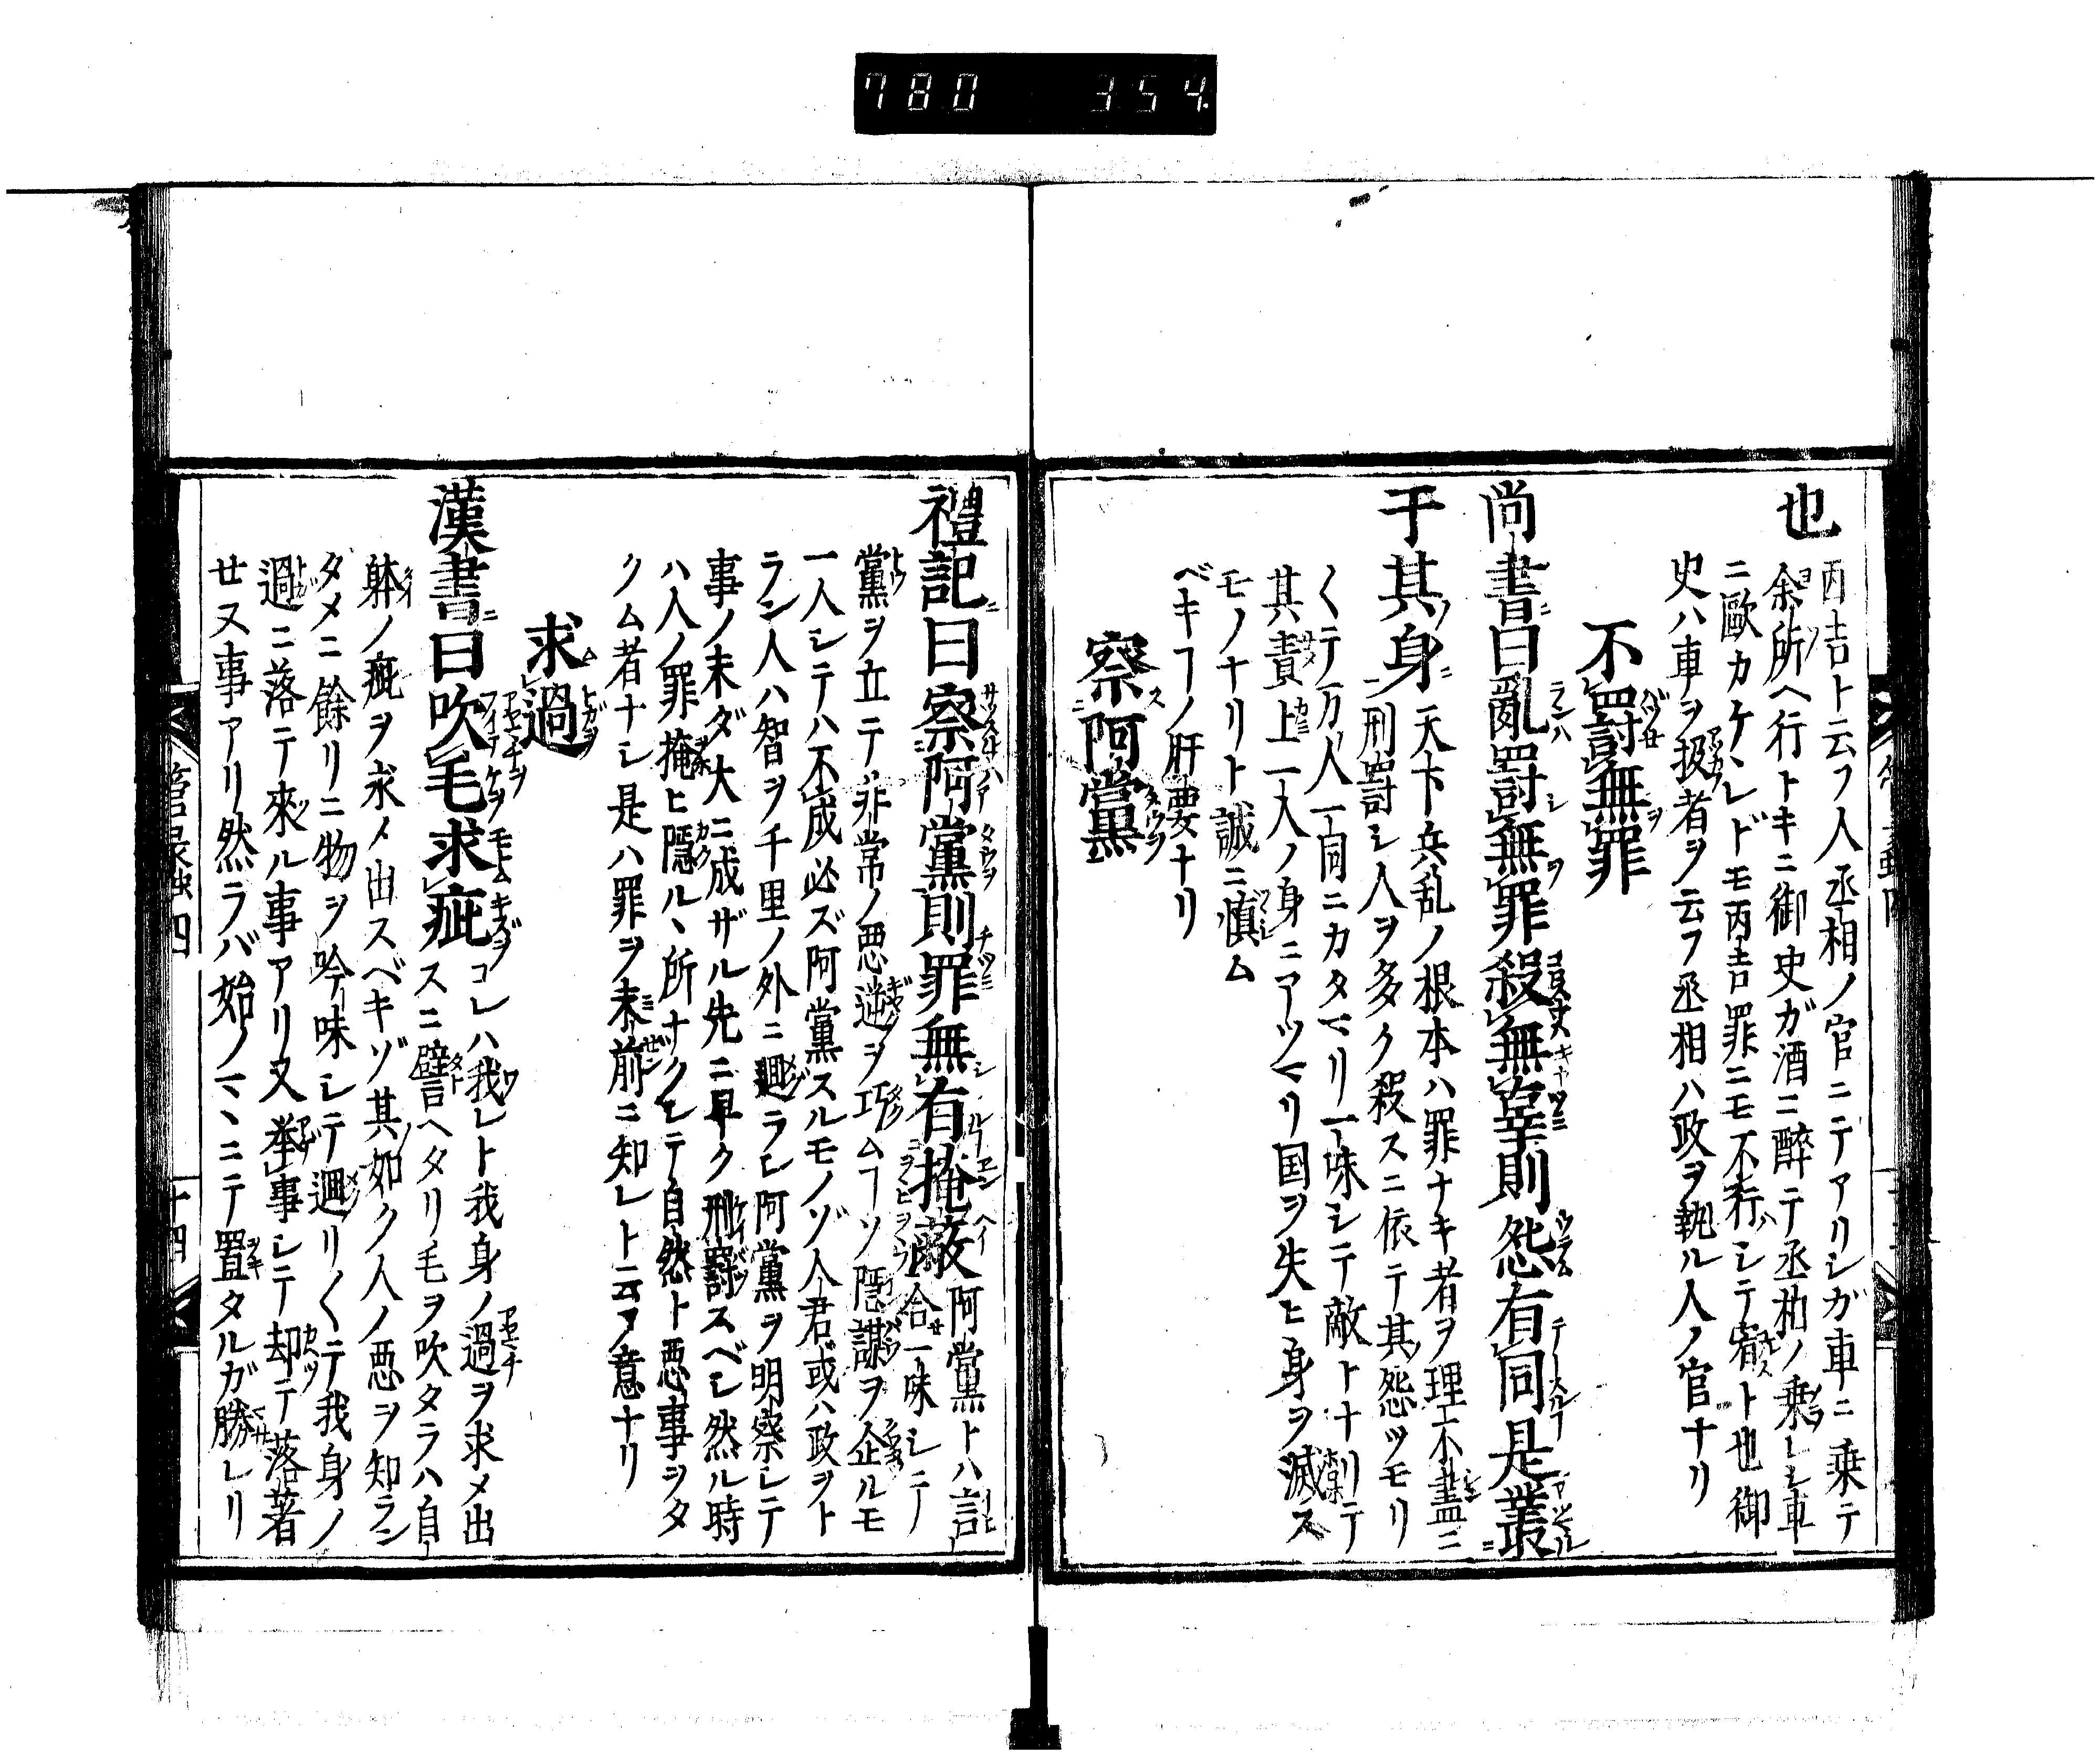 780 354
也 丙吉ト云フ人丞相ノ官ニテアリシガ車ニ乗テ
余所ヘ行トキニ御史ガ酒ニ醉テ丞相ノ乗レシ車
ニ歐カケヽレドモ丙吉罪ニモ不行シテ宥ト也御
史ハ車ヲ扱者ヲ云フ丞相ハ政ヲ執ル人ノ官ナリ
不罰無罪
尚書曰亂罰無罪殺無辜則怨有同是叢
于其身 天下兵乱ノ根本ハ罪ナキ者ヲ理不盡ニ
刑罸シ人ヲ多ク殺スニ依テ其怨ツモリ
〱テ万人一同ニカタマリ一味シテ敵トナリテ
其責上一人ノ身ニアツマリ国ヲ失ヒ身ヲ滅ス
モノナリト誠ニ慎ム
ベキヿノ肝要ナリ
察阿黨
禮記曰察阿黨則罪無有掩蔽 阿黨トハ言
合一味シテ
黨ヲ立テ非常ノ悪逆ヲ巧ムヿゾ隠謀ヲ企ルモ
一人シテハ不成必ズ阿黨スルモノゾ人君或ハ政ヲト
ラン人ハ智ヲ千里ノ外ニ廻ラシ阿黨ヲ明察シテ
事ノ未ダ大ニ成ザル先ニ早ク刑罸スベシ然ル時
ハ人ノ罪掩ヒ隠ルヽ所ナクシテ自然ト悪事ヲタ
クム者ナシ是ハ罪ヲ未前ニ知レト云フノ意ナリ
求過
漢書曰吹毛求疵 コレハ我レト我身ノ過ヲ求メ出
スニ譬ヘタリ毛ヲ吹タラハ自
躰ノ疵ヲ求メ出スベキゾ其如ク人ノ悪ヲ知ラン
タメニ餘リニ物ヲ吟味シテ廻リ〱テ我身ノ
過ニ落テ來ル事アリ又挙事シテ却テ落著
セヌ事アリ然ラバ始ノマヽニテ置タルガ勝レリ
管蠡抄四
十四